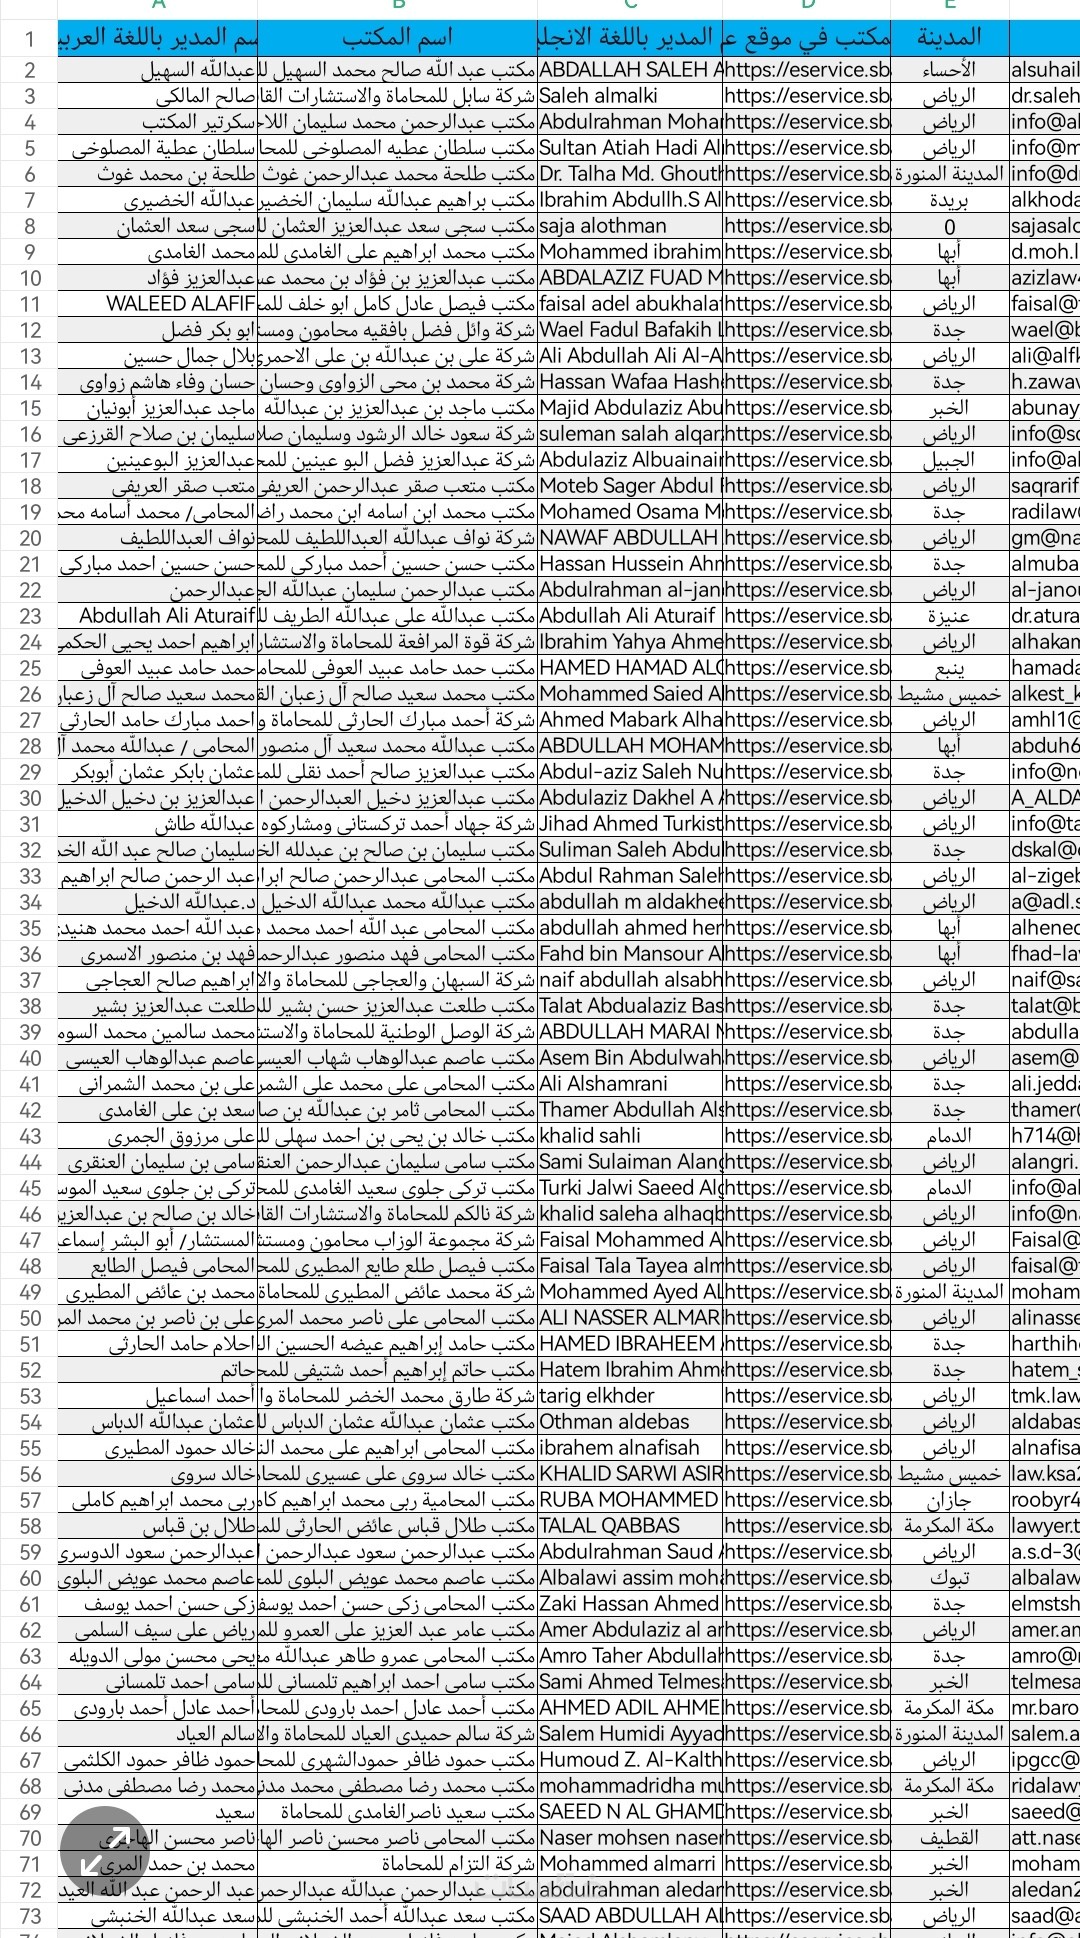 A B C D E
1 سم المدير باللغة العربي اسم المكتب المدير باللغة الانجلي مكتب في موقع ع المدينة
2 عبدالله السهيل مكتب عبد الله صالح محمد السهيل لل ABDALLAH SALEH A https://eservice.sb الأحساء alsuhail
3 صالح المالكي شركة سابل للمحاماة والاستشارات القا Saleh almalki https://eservice.sb الرياض dr.saleh
4 سكرتير المكتب مكتب عبدالرحمن محمد سليمان اللاح Abdulrahman Mohar https://eservice.sb الرياض info@al
5 سلطان عطية المصلوخي مكتب سلطان عطيه المصلوخي للمحا Sultan Atiah Hadi Al https://eservice.sb الرياض info@m
6 طلحة بن محمد غوث مكتب طلحة محمد عبدالرحمن غوث Dr. Talha Md. Ghouth https://eservice.sb المدينة المنورة info@dr
7 عبدالله الخضيري مكتب براهيم عبدالله سليمان الخضير Ibrahim Abdullh.S Al https://eservice.sb بريدة alkhoda
8 سجى سعد العثمان مكتب سجى سعد عبدالعزيز العثمان لل saja alothman https://eservice.sb 0 sajasalo
9 محمد الغامدي مكتب محمد ابراهيم علي الغامدي للم Mohammed ibrahim https://eservice.sb أبها d.moh.l
10 عبدالعزيز فؤاد مكتب عبدالعزيز بن فؤاد بن محمد عس ABDALAZIZ FUAD M https://eservice.sb أبها azizlaw
11 WALEED ALAFIF مكتب فيصل عادل كامل ابو خلف للمح faisal adel abukhalaf https://eservice.sb الرياض faisal@
12 ابو بكر فضل شركة وائل فضل بافقيه محامون ومست Wael Fadul Bafakih L https://eservice.sb جدة wael@b
13 بلال جمال حسين شركة علي بن عبدالله بن علي الاحمري Ali Abdullah Ali Al-A https://eservice.sb الرياض ali@alfk
14 حسان وفاء هاشم زواوي شركة محمد بن محي الزواوي وحسان Hassan Wafaa Hash https://eservice.sb جدة h.zawav
15 ماجد عبدالعزيز أبونيان مكتب ماجد بن عبدالعزيز بن عبدالله Majid Abdulaziz Abu https://eservice.sb الخبر abunay
16 سليمان بن صلاح القرزعي شركة سعود خالد الرشود وسليمان صلا suleman salah alqar https://eservice.sb الرياض info@so
17 عبدالعزيز البوعينين شركة عبدالعزيز فضل البو عينين للمح Abdulaziz Albuainain https://eservice.sb الجبيل info@al
18 متعب صقر العريفي مكتب متعب صقر عبدالرحمن العريفي Moteb Sager Abdul https://eservice.sb الرياض saqrarif
19 المحامي/ محمد أسامه محم مكتب محمد ابن اسامه ابن محمد راض Mohamed Osama M https://eservice.sb جدة radilaw
20 نواف العبداللطيف شركة نواف عبدالله العبداللطيف للمح NAWAF ABDULLAH https://eservice.sb الرياض gm@na
21 حسن حسين احمد مباركي مكتب حسن حسين أحمد مباركي للمح Hassan Hussein Ahm https://eservice.sb جدة almuba
22 عبدالرحمن مكتب عبدالرحمن سليمان عبدالله الج Abdulrahman al-jan https://eservice.sb الرياض al-jano
23 Abdullah Ali Aturaif مكتب عبدالله علي عبدالله الطريف لل Abdullah Ali Aturaif https://eservice.sb عنيزة dr.atura
24 ابراهيم احمد يحيى الحكمي شركة قوة المرافعة للمحاماة والاستشار Ibrahim Yahya Ahme https://eservice.sb الرياض alhakam
25 حمد حامد عبيد العوفي مكتب حمد حامد عبيد العوفي للمحام HAMED HAMAD ALO https://eservice.sb ينبع hamada
26 محمد سعيد صالح آل زعبار مكتب محمد سعيد صالح آل زعبان الق Mohammed Saied A https://eservice.sb خميس مشيط alkest_k
27 احمد مبارك حامد الحارثي شركة أحمد مبارك الحارثي للمحاماة و Ahmed Mabark Alha https://eservice.sb الرياض amhl1@
28 المحامي / عبدالله محمد آل مكتب عبدالله محمد سعيد آل منصور ABDULLAH MOHAM https://eservice.sb أبها abduh6
29 عثمان بابكر عثمان أبوبكر مكتب عبدالعزيز صالح أحمد نقلي للم Abdul-aziz Saleh Nu https://eservice.sb جدة info@no
30 عبدالعزيز بن دخيل الدخيل مكتب عبدالعزيز دخيل العبدالرحمن ا Abdulaziz Dakhel A https://eservice.sb الرياض A_ALDA
31 عبدالله طاش شركة جهاد أحمد تركستاني ومشاركوه Jihad Ahmed Turkist https://eservice.sb الرياض info@ta
32 سليمان صالح عبد الله الخ مكتب سليمان بن صالح بن عبدلله الخ Suliman Saleh Abdul https://eservice.sb جدة dskal@
33 عبد الرحمن صالح ابراهيم مكتب المحامي عبدالرحمن صالح ابرا Abdul Rahman Saleh https://eservice.sb الرياض al-zigeb
34 د.عبدالله الدخيل مكتب عبدالله محمد عبدالله الدخيل abdullah m aldakhee https://eservice.sb الرياض a@adl.s
35 عبد الله احمد محمد هنيدي مكتب المحامي عبد الله احمد محمد abdullah ahmed her https://eservice.sb أبها alhened
36 فهد بن منصور الاسمري مكتب المحامي فهد منصور عبدالرحم Fahd bin Mansour A https://eservice.sb أبها fhad-la
37 ابراهيم صالح العجاجي شركة السبهان والعجاجي للمحاماة والا naif abdullah alsabh https://eservice.sb الرياض naif@sa
38 طلعت عبدالعزيز بشير مكتب طلعت عبدالعزيز حسن بشير لل Talat Abdualaziz Bas https://eservice.sb جدة talat@b
39 محمد سالمين محمد السوم شركة الوصل الوطنية للمحاماة والاست ABDULLAH MARAI https://eservice.sb جدة abdulla
40 عاصم عبدالوهاب العيسى مكتب عاصم عبدالوهاب شهاب العيس Asem Bin Abdulwah https://eservice.sb الرياض asem@
41 علي بن محمد الشمراني مكتب المحامي علي محمد علي الشمر Ali Alshamrani https://eservice.sb جدة ali.jedda
42 سعد بن علي الغامدي مكتب المحامي ثامر بن عبدالله بن صا Thamer Abdullah Als https://eservice.sb جدة thamer
43 علي مرزوق الجمري مكتب خالد بن يحي بن احمد سهلي لل khalid sahli https://eservice.sb الدمام h714@h
44 سامي بن سليمان العنقري مكتب سامي سليمان عبدالرحمن العنق Sami Sulaiman Alang https://eservice.sb الرياض alangri.
45 تركي بن جلوي سعيد الموس مكتب تركي جلوي سعيد الغامدي للمح Turki Jalwi Saeed Alg https://eservice.sb الدمام info@al
46 خالد بن صالح بن عبدالعزيز شركة نالكم للمحاماة والاستشارات القا khalid saleha alhaqb https://eservice.sb الرياض info@na
47 المستشار/ أبو البشر إسماعي شركة مجموعة الوزاب محامون ومستش Faisal Mohammed A https://eservice.sb الرياض Faisal@
48 المحامي فيصل الطايع مكتب فيصل طلع طايع المطيري للمح Faisal Tala Tayea alm https://eservice.sb الرياض faisal@
49 محمد بن عائض المطيري شركة محمد عائض المطيري للمحاماة Mohammed Ayed AL https://eservice.sb المدينة المنورة moham
50 علي بن ناصر بن محمد المر مكتب المحامي علي ناصر محمد المري ALI NASSER ALMAR https://eservice.sb الرياض alinasse
51 احلام حامد الحارثي مكتب حامد إبراهيم عيضه الحسين ال HAMED IBRAHEEM https://eservice.sb جدة harthih
52 حاتم مكتب حاتم إبراهيم أحمد شتيفي للمح Hatem Ibrahim Ahm https://eservice.sb جدة hatem_s
53 أحمد اسماعيل شركة طارق محمد الخضر للمحاماة وا tarig elkhder https://eservice.sb الرياض tmk.law
54 عثمان عبدالله الدباس مكتب عثمان عبدالله عثمان الدباس لل Othman aldebas https://eservice.sb الرياض aldabas
55 خالد حمود المطيري مكتب المحامي ابراهيم علي محمد الن ibrahem alnafisah https://eservice.sb الرياض alnafisa
56 خالد سروي مكتب خالد سروي علي عسيري للمحا KHALID SARWI ASIR https://eservice.sb خميس مشيط law.ksa2
57 ربى محمد ابراهيم كاملي مكتب المحامية ربى محمد ابراهيم كام RUBA MOHAMMED https://eservice.sb جازان roobyr4
58 طلال بن قباس مكتب طلال قباس عائض الحارثي للم TALAL QABBAS https://eservice.sb مكة المكرمة lawyer.t
59 عبدالرحمن سعود الدوسري مكتب عبدالرحمن سعود عبدالرحمن ا Abdulrahman Saud https://eservice.sb الرياض a.s.d-3@
60 عاصم محمد عويض البلوي مكتب عاصم محمد عويض البلوي للمح Albalawi assim moh https://eservice.sb تبوك albalaw
61 زكي حسن احمد يوسف مكتب المحامي زكي حسن احمد يوسف Zaki Hassan Ahmed https://eservice.sb جدة elmstsh
62 رياض علي سيف السلمي مكتب عامر عبد العزيز علي العمرو للم Amer Abdulaziz al ar https://eservice.sb الرياض amer.an
63 يحي محسن مولى الدويله مكتب المحامي عمرو طاهر عبدالله م Amro Taher Abdullah https://eservice.sb جدة amro@r
64 سامي احمد تلمساني مكتب سامي احمد ابراهيم تلمساني لل Sami Ahmed Telmes https://eservice.sb الخبر telmesa
65 أحمد عادل أحمد بارودي مكتب أحمد عادل احمد بارودي للمحا AHMED ADIL AHME https://eservice.sb مكة المكرمة mr.baro
66 سالم العياد شركة سالم حميدي العياد للمحاماة والا Salem Humidi Ayyad https://eservice.sb المدينة المنورة salem.a
67 حمود ظافر حمود الكلثمي مكتب حمود ظافر حمودالشهري للمحا Humoud Z. Al-Kalth https://eservice.sb الرياض ipgcc@
68 محمد رضا مصطفى مدني مكتب محمد رضا مصطفى محمد مدن mohammadridha mu https://eservice.sb مكة المكرمة ridalaw
69 سعيد مكتب سعيد ناصرالغامدي للمحاماة SAEED N AL GHAMD https://eservice.sb الخبر saeed@
70 ناصر محسن الهاجري مكتب المحامي ناصر محسن ناصر الها Naser mohsen naser https://eservice.sb القطيف att.nase
71 محمد بن حمد المري شركة التزام للمحاماة Mohammed almarri https://eservice.sb الخبر moham
72 عبد الرحمن عبد الله العيد مكتب عبدالرحمن عبدالله عبدالرحم abdulrahman aledar https://eservice.sb الخبر aledan2
73 سعد عبدالله الخنبشي مكتب سعد عبدالله أحمد الخنبشي لل SAAD ABDULLAH AL https://eservice.sb الرياض saad@a